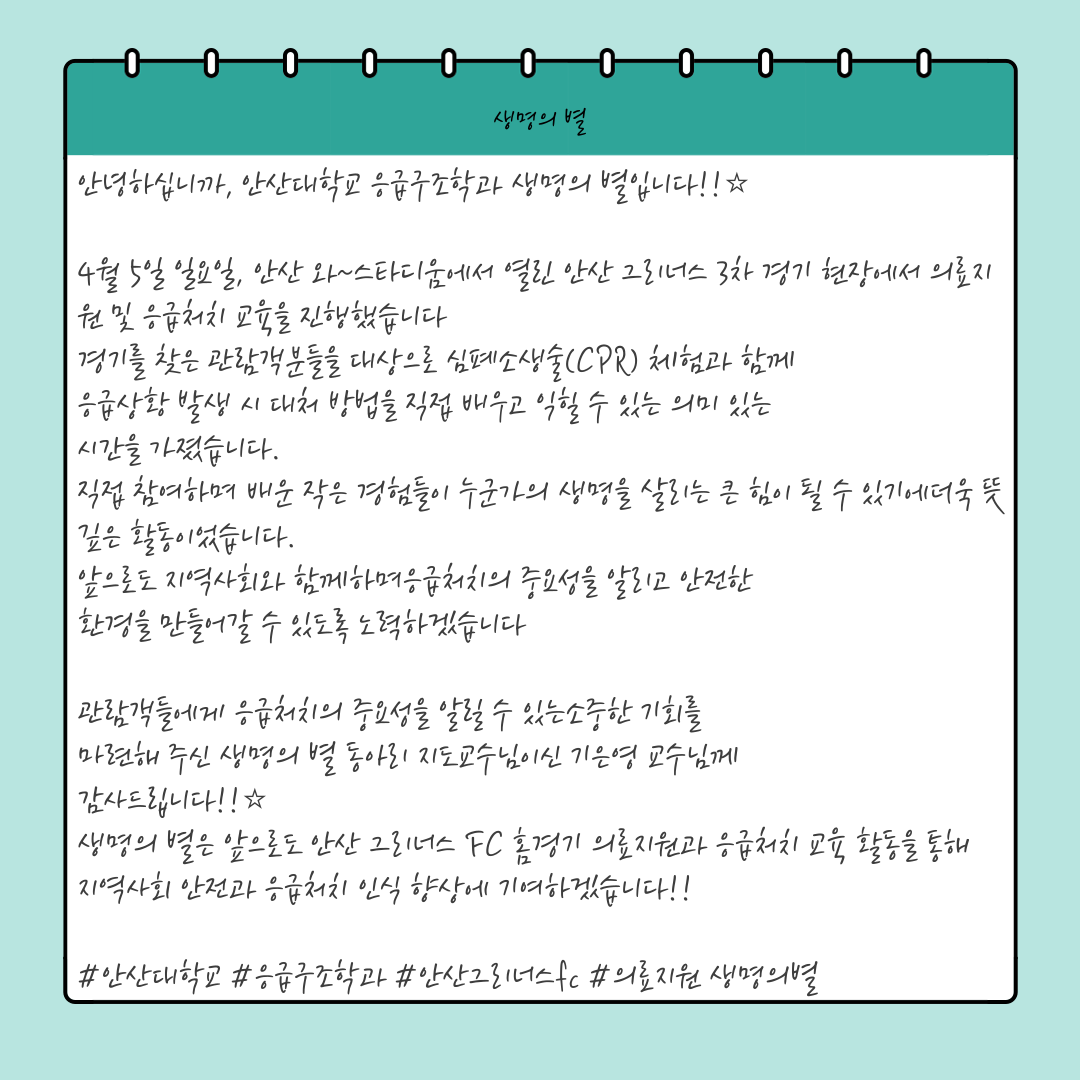 생명의 별
안녕하십니까, 안산대학교 응급구조학과 생명의 별입니다!!☆
4월 5일 일요일, 안산 와~스타디움에서 열린 안산 그리너스 3차 경기 현장에서 의료지
원 및 응급처치 교육을 진행했습니다
경기를 찾은 관람객분들을 대상으로 심폐소생술(CPR) 체험과 함께
응급상황 발생 시 대처 방법을 직접 배우고 익힐 수 있는 의미 있는
시간을 가졌습니다.
직접 참여하며 배운 작은 경험들이 누군가의 생명을 살리는 큰 힘이 될 수 있기에더욱 뜻
깊은 활동이었습니다.
앞으로도 지역사회와 함께하며응급처치의 중요성을 알리고 안전한
환경을 만들어갈 수 있도록 노력하겠습니다
관람객들에게 응급처치의 중요성을 알릴 수 있는소중한 기회를
마련해 주신 생명의 별 동아리 지도교수님이신 기은영 교수님께
감사드립니다!!☆
생명의 별은 앞으로도 안산 그리너스 FC 홈경기 의료지원과 응급처치 교육 활동을 통해
지역사회 안전과 응급처치 인식 향상에 기여하겠습니다!!
#안산대학교 #응급구조학과 #안산그리너스fc #의료지원 생명의별